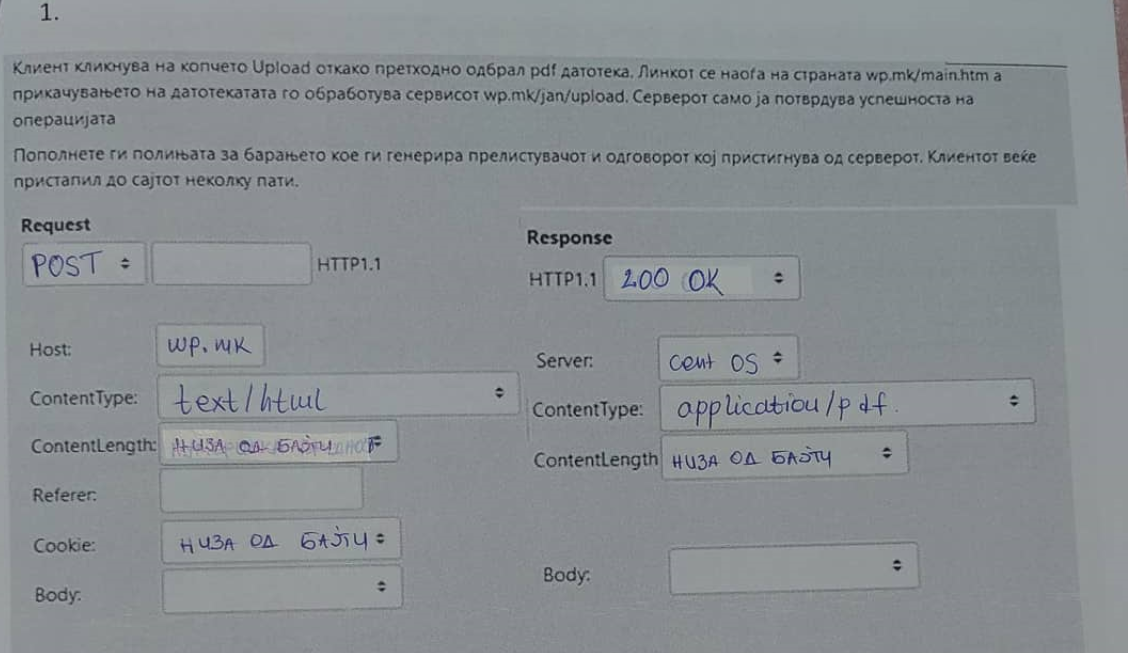 1.
Клиент кликнува на копчето Upload откако претходно одбрал pdf датотека. Линкот се наоѓа на страната wp.mk/main.htm а
прикачувањето на датотекатата го обработува сервисот wp.mk/jan/upload. Серверот само ја потврдува успешноста на
операцијата
Пополнете ги полињата за барањето кое ги генерира прелистувачот и одговорот кој пристигнува од серверот. Клиентот веќе
пристапил до сајтот неколку пати.
Request
POST HTTP1.1
Host: wp.mk
ContentType: text/html
ContentLength: НИЗА ОД БАЈТИ
Referer:
Cookie: НИЗА ОД БАЈТИ
Body:
Response
HTTP1.1 200 OK
Server: cent OS
ContentType: application/pdf.
ContentLength НИЗА ОД БАЈТИ
Body: